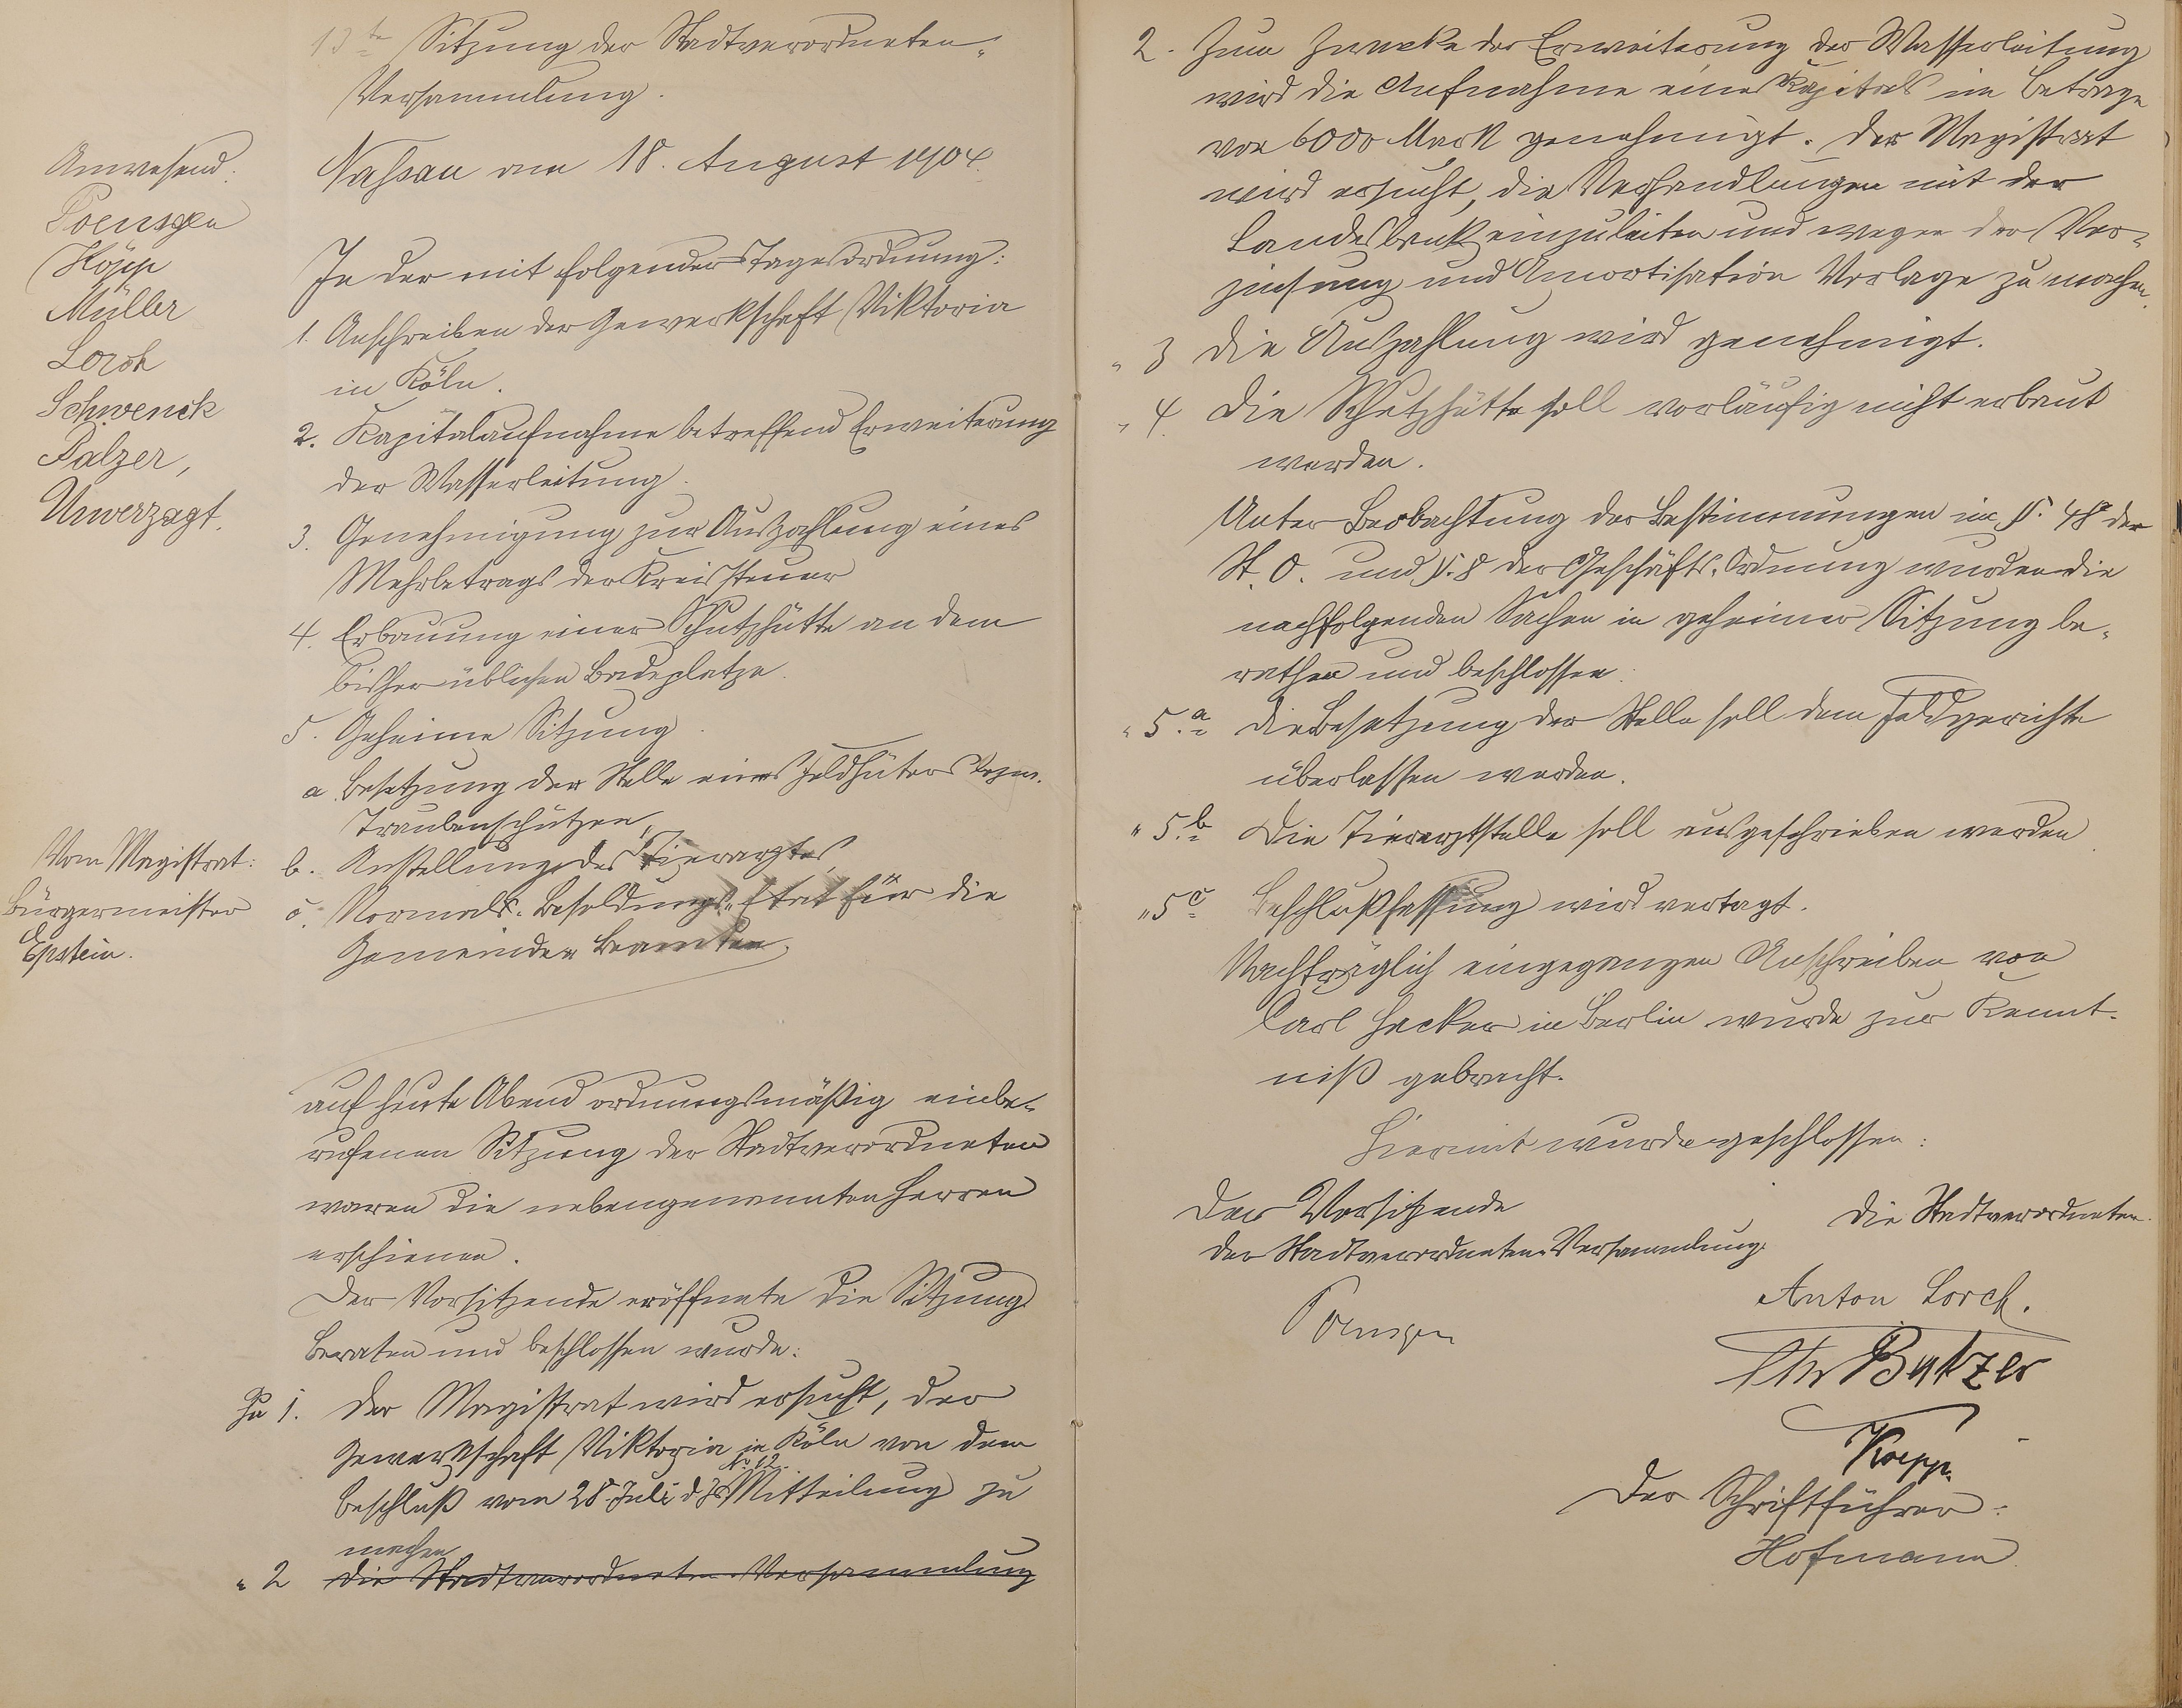 13te Sitzung der Stadtverordneten-
Versammlung.
Nassau am 18. August 1904.
Anwesend:
Poensgen
Köpp
Müller
Lorch
Schwenck
Balzer,
Unverzagt.
In der mit folgender Tagesordnung:
1. Anschreiben der Gewerkschaft Viktoria
in Köln.
2. Kapitalaufnahme betreffend Erweiterung
der Wasserleitung.
3. Genehmigung zur Auszahlung eines
Mehrbetrags der Kreissteuer
4. Erbauung einer Schutzhütte an dem
bisher üblichen Badeplatze.
5. Geheime Sitzung.
a. Besetzung der Stelle eines Feldhüters bezw.
Traubenschützen,
b. Anstellung des Tierarztes,
c. Normal-Besoldungs-Etat für die
Gemeinde-Beamten,
Vom Magistrat:
Bürgermeister
Epstein.
auf heute Abend ordnungsmäßig einbe-
rufenen Sitzung der Stadtverordneten
waren die nebengenannten Herren
erschienen.
Der Vorsitzende eröffnete die Sitzung
Beraten und beschlossen wurde:
Zu 1. Der Magistrat wird ersucht, der
Gewerkschaft Viktoria in Köln von dem
Beschluß vom 28. Juli d. Js. No 12. Mitteilung zu
machen
" 2 Die Stadtverordneten-Versammlung
2. Zum Zwecke der Erweiterung der Wasserleitung
wird die Aufnahme eines Kapitals im Betrage
von 6000 Mark genehmigt. Der Magistrat
wird ersucht, die Verhandlungen mit der
Landesbank einzuleiten und wegen der Ver-
zinsung und Amortisation Vorlage zu machen.
" 3 Die Auszahlung wird genehmigt.
" 4. Die Schutzhütte soll vorläufig nicht erbaut
werden.
Unter Beobachtung der Bestimmungen im §. 48 der
St. O. und §. 8 der Geschäfts-Ordnung wurden die
nachfolgenden Sachen in geheimer Sitzung be-
rathen und beschlossen:
" 5.a Die Besetzung der Stelle soll dem Feldgerichte
überlassen werden.
" 5.b Die Tierarztstelle soll ausgeschrieben werden.
" 5c Beschlußfassung wird vertagt.
Nachträglich eingegangen Anschreiben von
Carl Hecker in Berlin wurde zur Kennt-
niß gebracht.
Hiermit wurde geschlossen:
Der Vorsitzende
der Stadtverordneten-Versammlung.
Poensgen
Die Stadtverordneten.
Anton Lorch.
Balzer
Koepp.
Der Schriftführer:
Hofmann